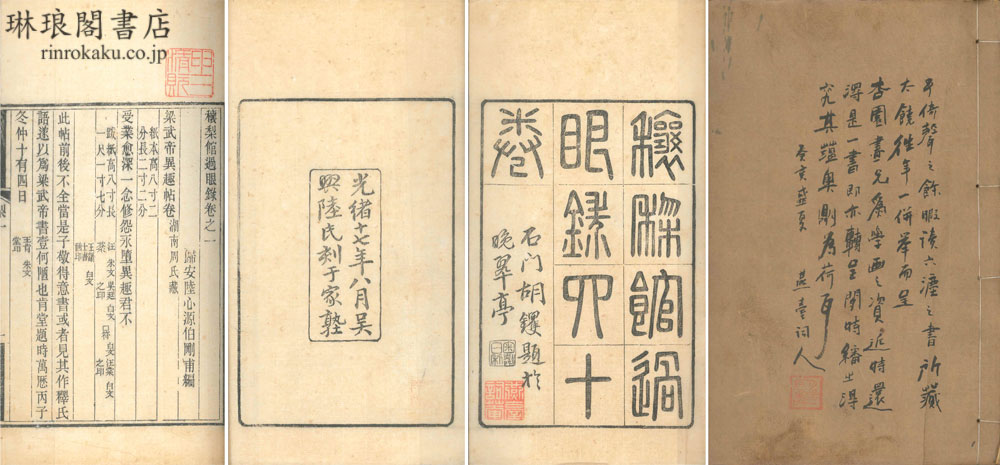 琳琅閣書店
rinrokaku.co.jp
穰梨館過眼錄卷之一
歸安陸心源伯剛甫編
梁武帝異趣帖卷 湖南周氏藏
紙本高八寸二
分長二寸二分
受業愈深一念修怨永墮異趣君不
跋紙高八寸長
一尺一寸七分
此帖前後不全當是子敬得意書或者見其作釋氏
語遂以爲梁武帝書壹何陋也肯堂題時萬厯丙子
冬仲十有四日
光緒十七年八月吳
興陸氏刻于家塾
穰梨館過
眼錄四十
卷
石門胡钁題於
晚翠亭
倚聲之餘暇讀六之書所藏
太饒往年一併舉而呈
杏園畫兄為學画之資近時還
得是一書即亦呈閒時繙之得
究其蘊奥則為荷耳
癸亥盛夏 燕臺詞人